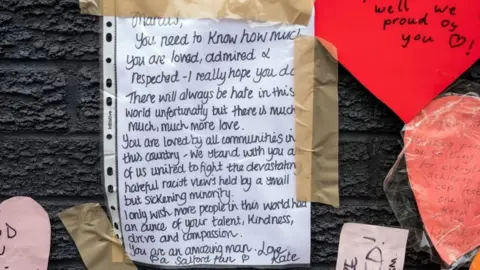 Marcus,
You need to know how much
you are loved, admired &
respected - I really hope you do
There will always be hate in this
world unfortunately but there is much
much, much more love.
You are loved by all communities in
this country - We stand with you
of us united to fight the devastating
hateful racist views held by a small
but sickening minority.
I only wish more people in this world had
an ounce of your talent, kindness,
drive and compassion.
You are an amazing man. Love
a Salford fan Kate
well we
proud of
you